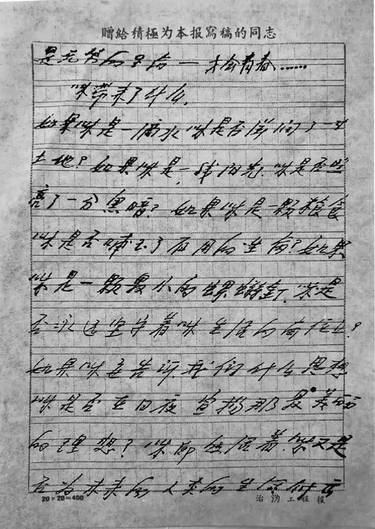 贈給積極为本报寫稿的同志
是无 的 — 青春……
你带来了什么.
如果你是一滴水 你是否滋润了一寸
土地? 如果你是一线阳光, 你是否照
亮了一分黑暗? 如果你是一颗粮食
你是否哺育了有用的生命? 如果
你是一颗最小的螺丝钉, 你是
否永远坚守着你生活的岗位?
如果你要告诉我们什么思想
你是否在日夜宣扬那最美丽
的理想? 你既然活着, 你又是
否为未来的人类的生活付出
20×20=400